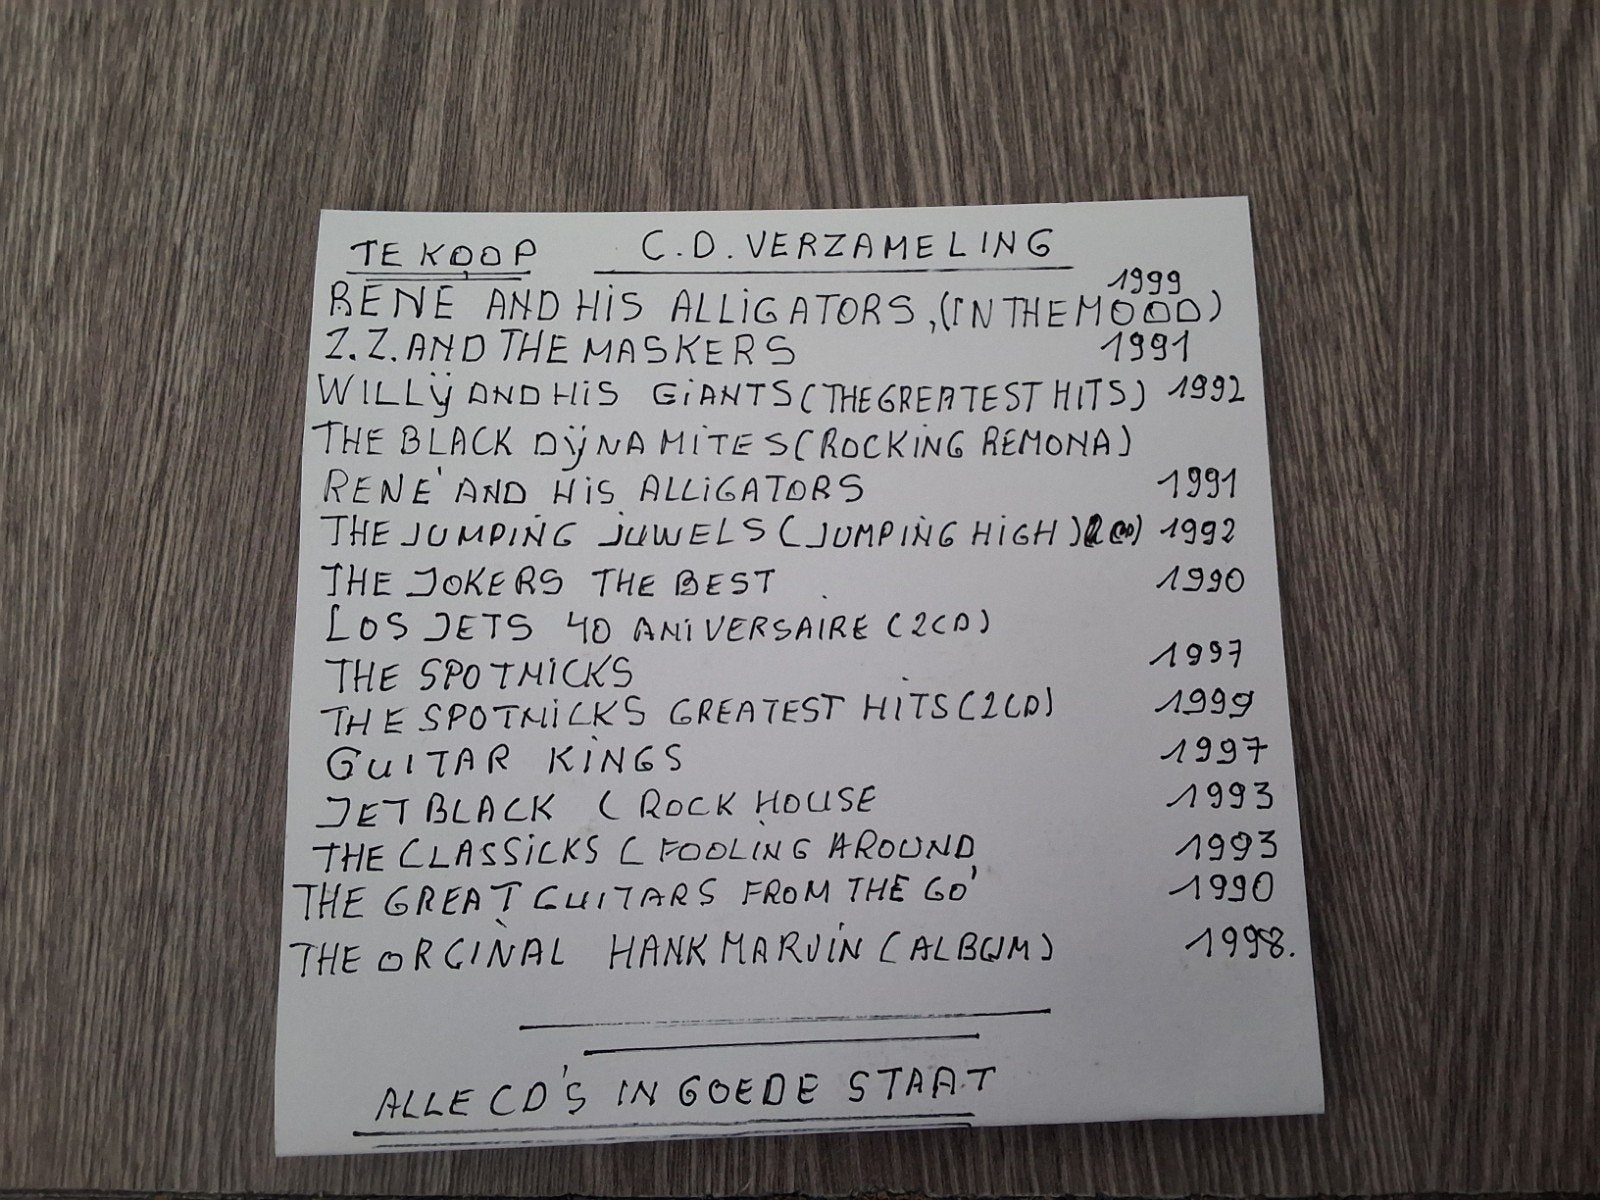 TE KOOP C.D. VERZAMELING
RENE AND HIS ALLIGATORS, (IN THE MOOD) 1999
Z.Z. AND THE MASKERS 1991
WILLÿ AND HIS GIANTS (THE GREATEST HITS) 1992
THE BLACK DÿNAMITES (ROCKING REMONA)
RENE' AND HIS ALLIGATORS 1991
THE JUMPING JUWELS (JUMPING HIGH) (2CD) 1992
THE JOKERS THE BEST 1990
LOS JETS 40 ANIVERSAIRE (2CD)
THE SPOTNICKS 1997
THE SPOTNICKS GREATEST HITS (2CD) 1999
GUITAR KINGS 1997
JET BLACK ( ROCK HOUSE 1993
THE CLASSICKS ( FOOLING AROUND 1993
THE GREAT GUITARS FROM THE 60' 1990
THE ORGINAL HANK MARVIN (ALBUM) 1998.
ALLE CD'S IN GOEDE STAAT